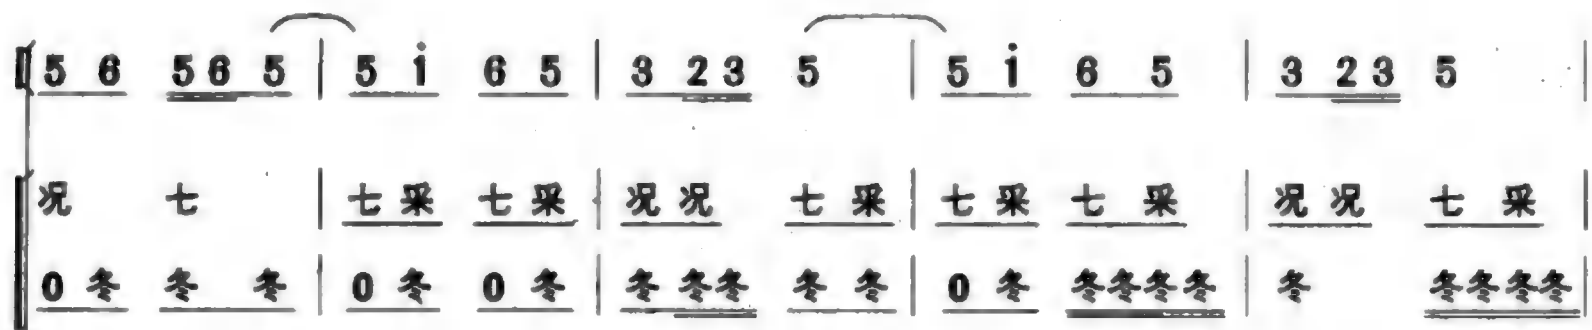 5 6 5 6 5 | 5 i̇ 6 5 | 3 2 3 5 | 5 i̇ 6 5 | 3 2 3 5 |
况 七 | 七 采 七 采 | 况 况 七 采 | 七 采 七 采 | 况 况 七 采 |
0 冬 冬 冬 | 0 冬 0 冬 | 冬 冬冬 冬 冬 | 0 冬 冬冬冬冬 | 冬 冬冬冬冬 |